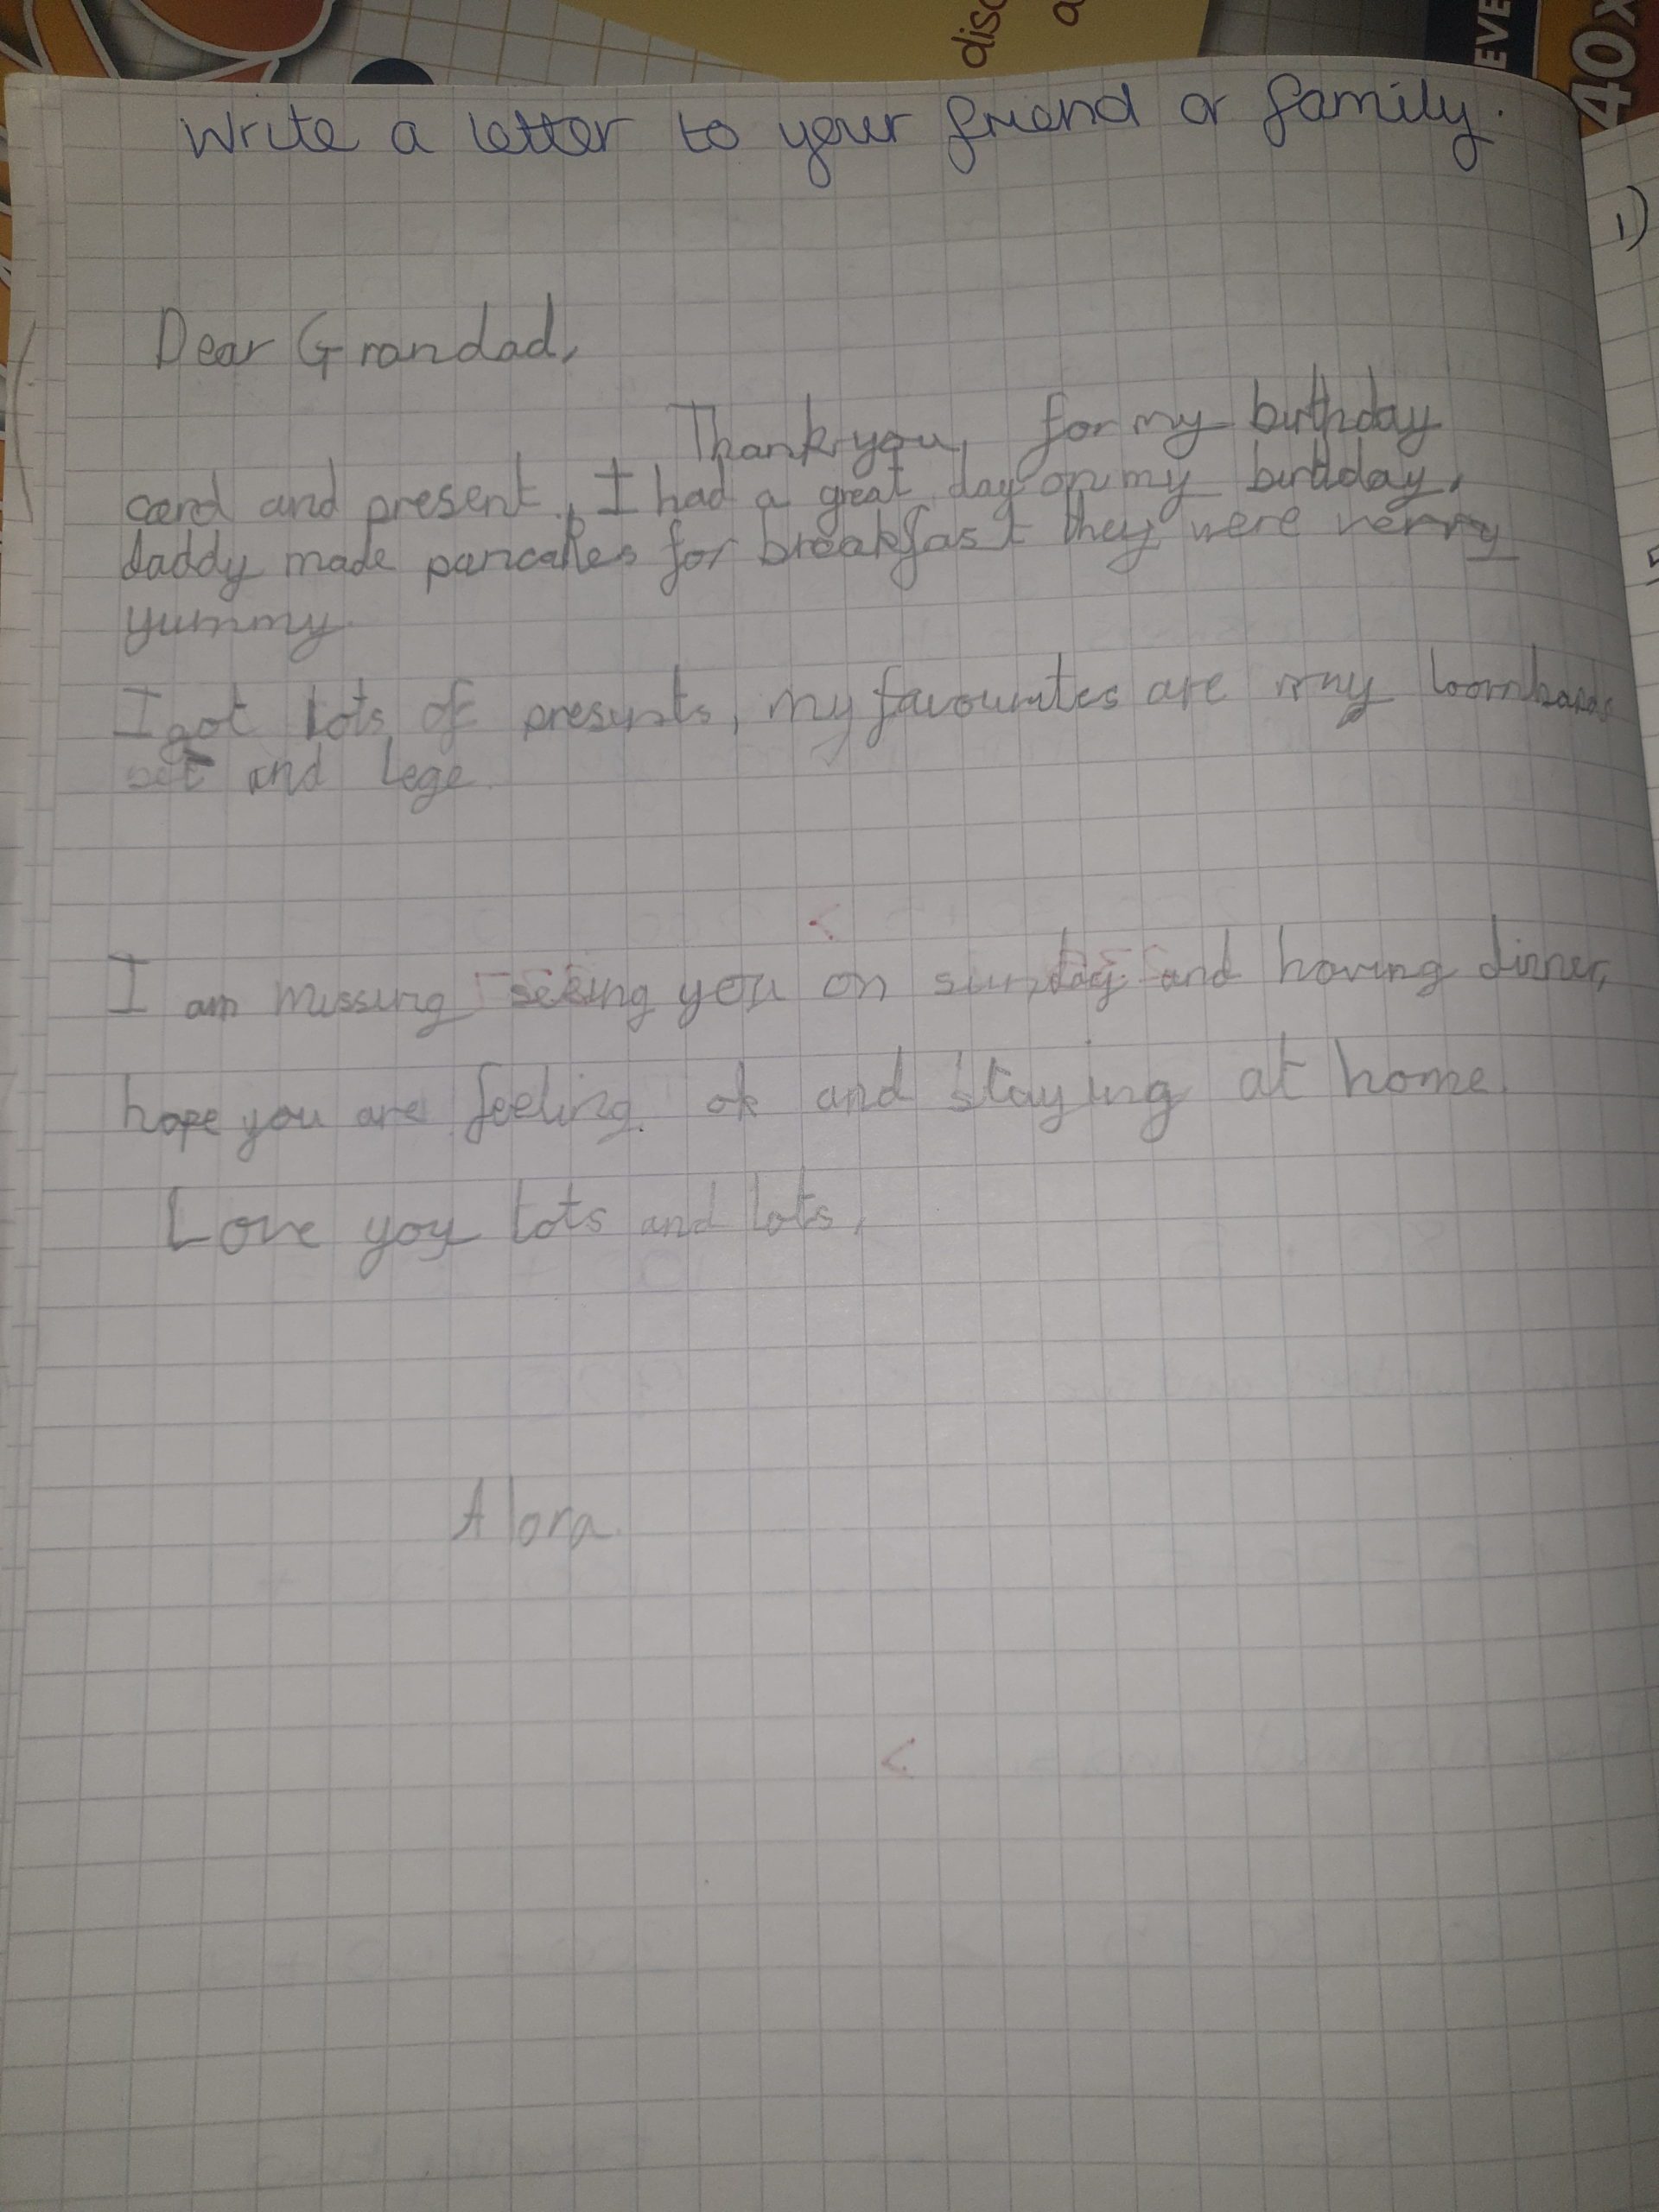 disc
a
EVE
40x
Write a letter to your friend or family.
1)
Dear Grandad,
Thank you for my birthday
card and present, I had a great day on my birthday,
daddy made pancakes for breakfast they were verry
yummy.
I got lots of presents, my favourites are my loombands
set and Lego.
I am missing seeing you on sunday and having dinner,
hope you are feeling ok and staying at home.
Love yoy lots and lots,
Alora